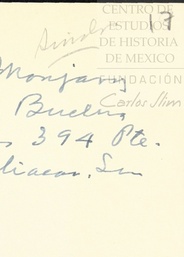 CENTRO DE
ESTUDIOS
DE HISTORIA
DE MEXICO
FUNDACIÓN
Carlos Slim
17
Sinaloa
Monjaraz
Buelna
394 Pte.
Culiacan, Sin